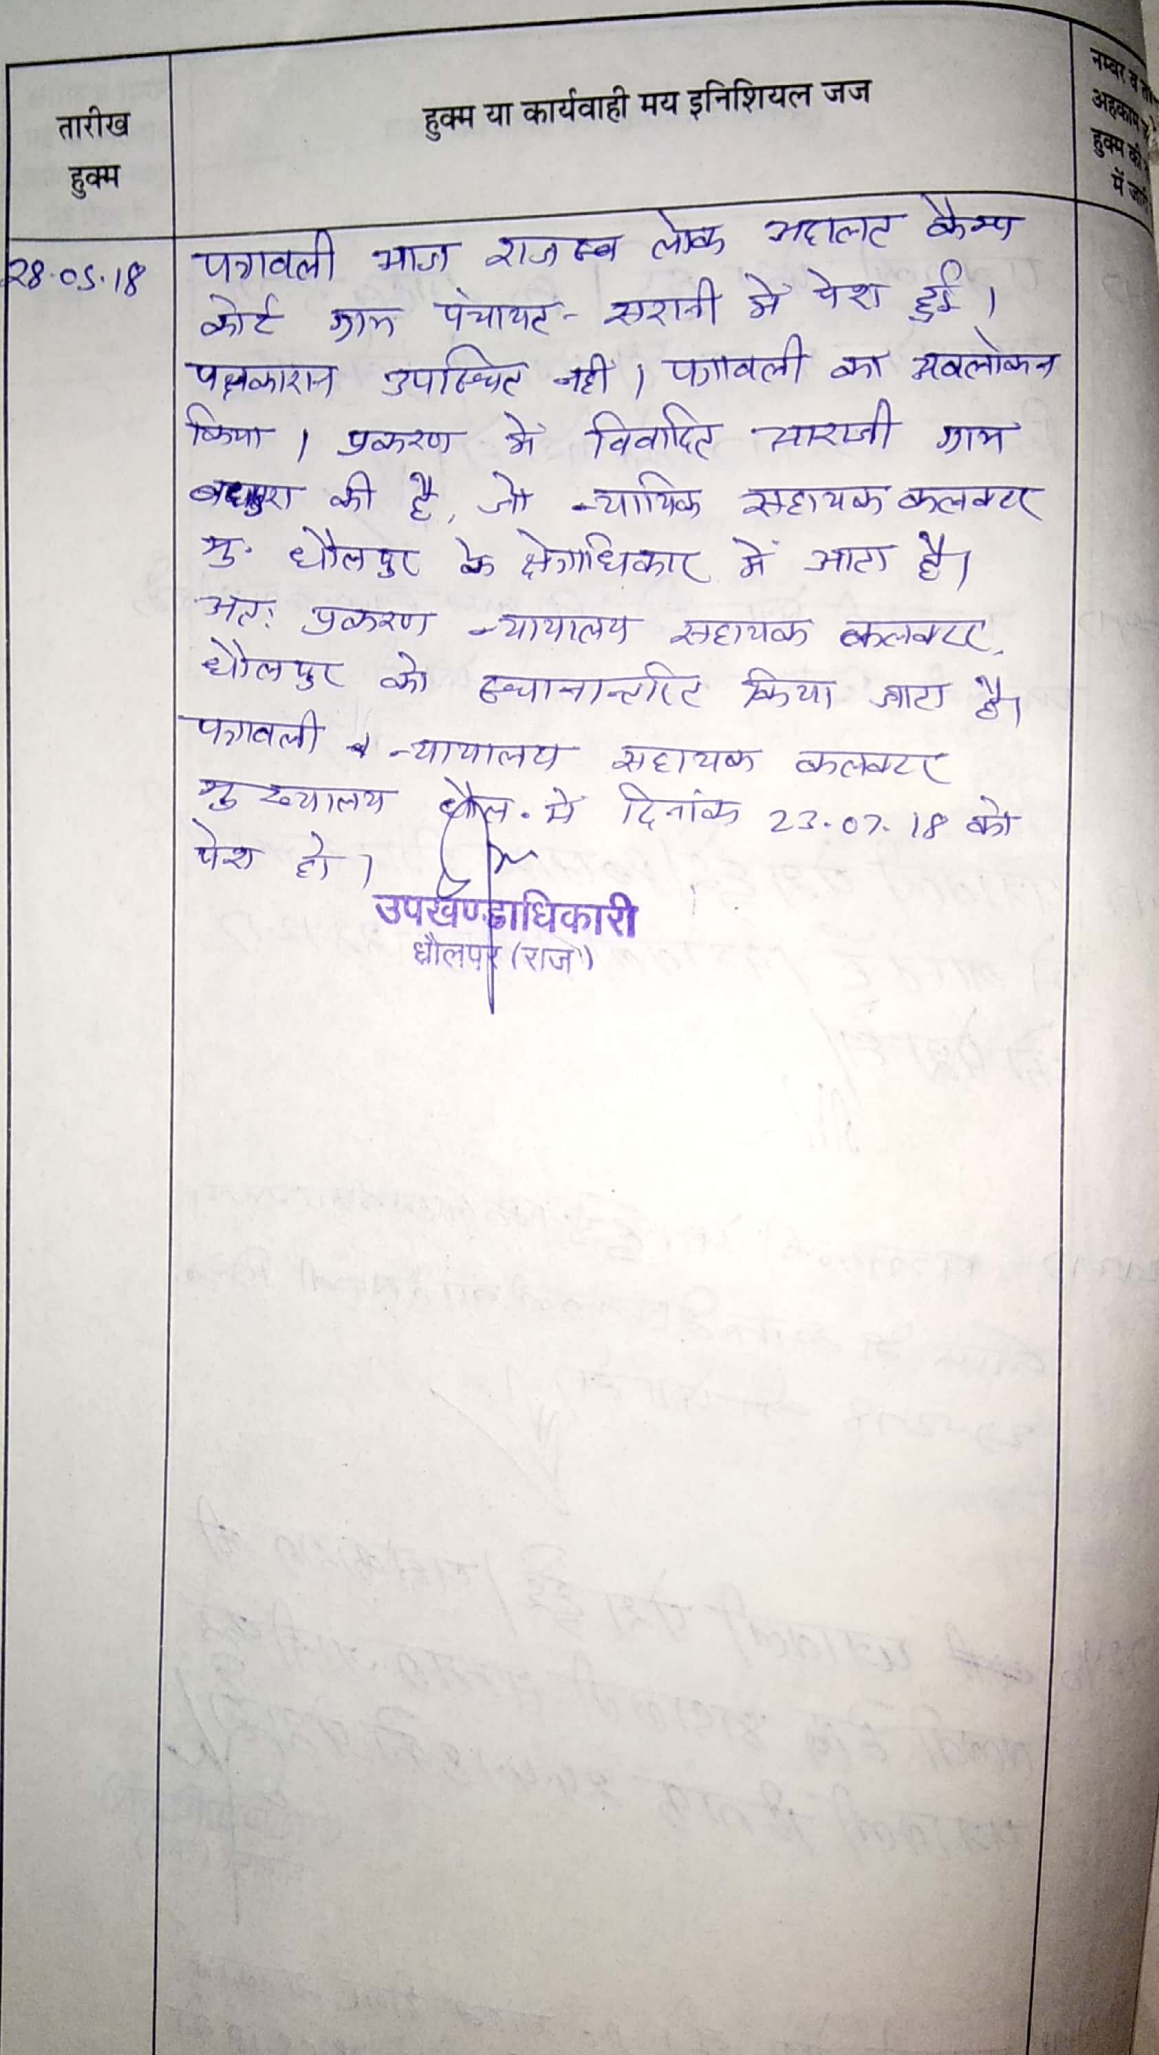 तारीख
हुक्म
हुक्म या कार्यवाही मय इनिशियल जज
नम्बर व
अहकाम
हुक्म की
में
28.05.18
पत्रावली आज राजस्व लोक अदालत कैम्प
कोर्ट ग्राम पंचायत - सरानी में पेश हुई।
पक्षकारान उपस्थित नहीं। पत्रावली का अवलोकन
किया। प्रकरण में विवादित आराजी ग्राम
की है, जो न्यायिक सहायक कलक्टर
मु. धौलपुर के क्षेत्राधिकार में आता है।
अतः प्रकरण न्यायालय सहायक कलक्टर,
धौलपुर को स्थानान्तरित किया जाता है।
पत्रावली न्यायालय सहायक कलक्टर
मुख्यालय धौल. में दिनांक 23.07.18 को
पेश हो।
उपखण्डाधिकारी
धौलपुर (राज०)